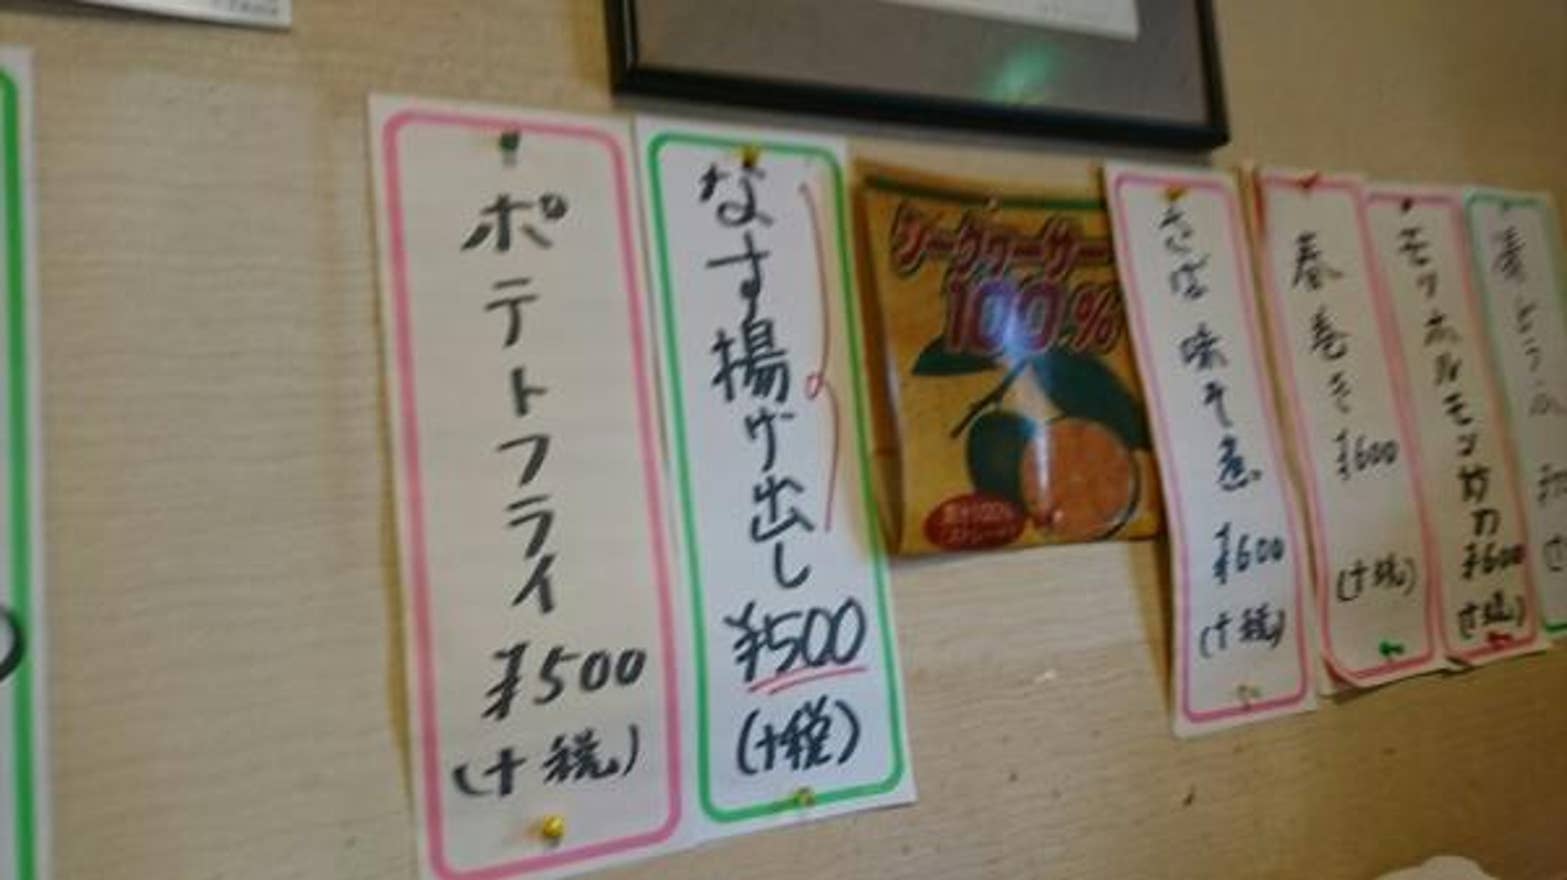 ポテトフライ
¥500
(+税)
なす揚げ出し
¥500
(+税)
シークヮーサー
100%
果汁100%
ストレート
さば味そ煮
¥600
(+税)
春巻き
¥600
(+税)
モツホルモン炒め
¥600
(+税)